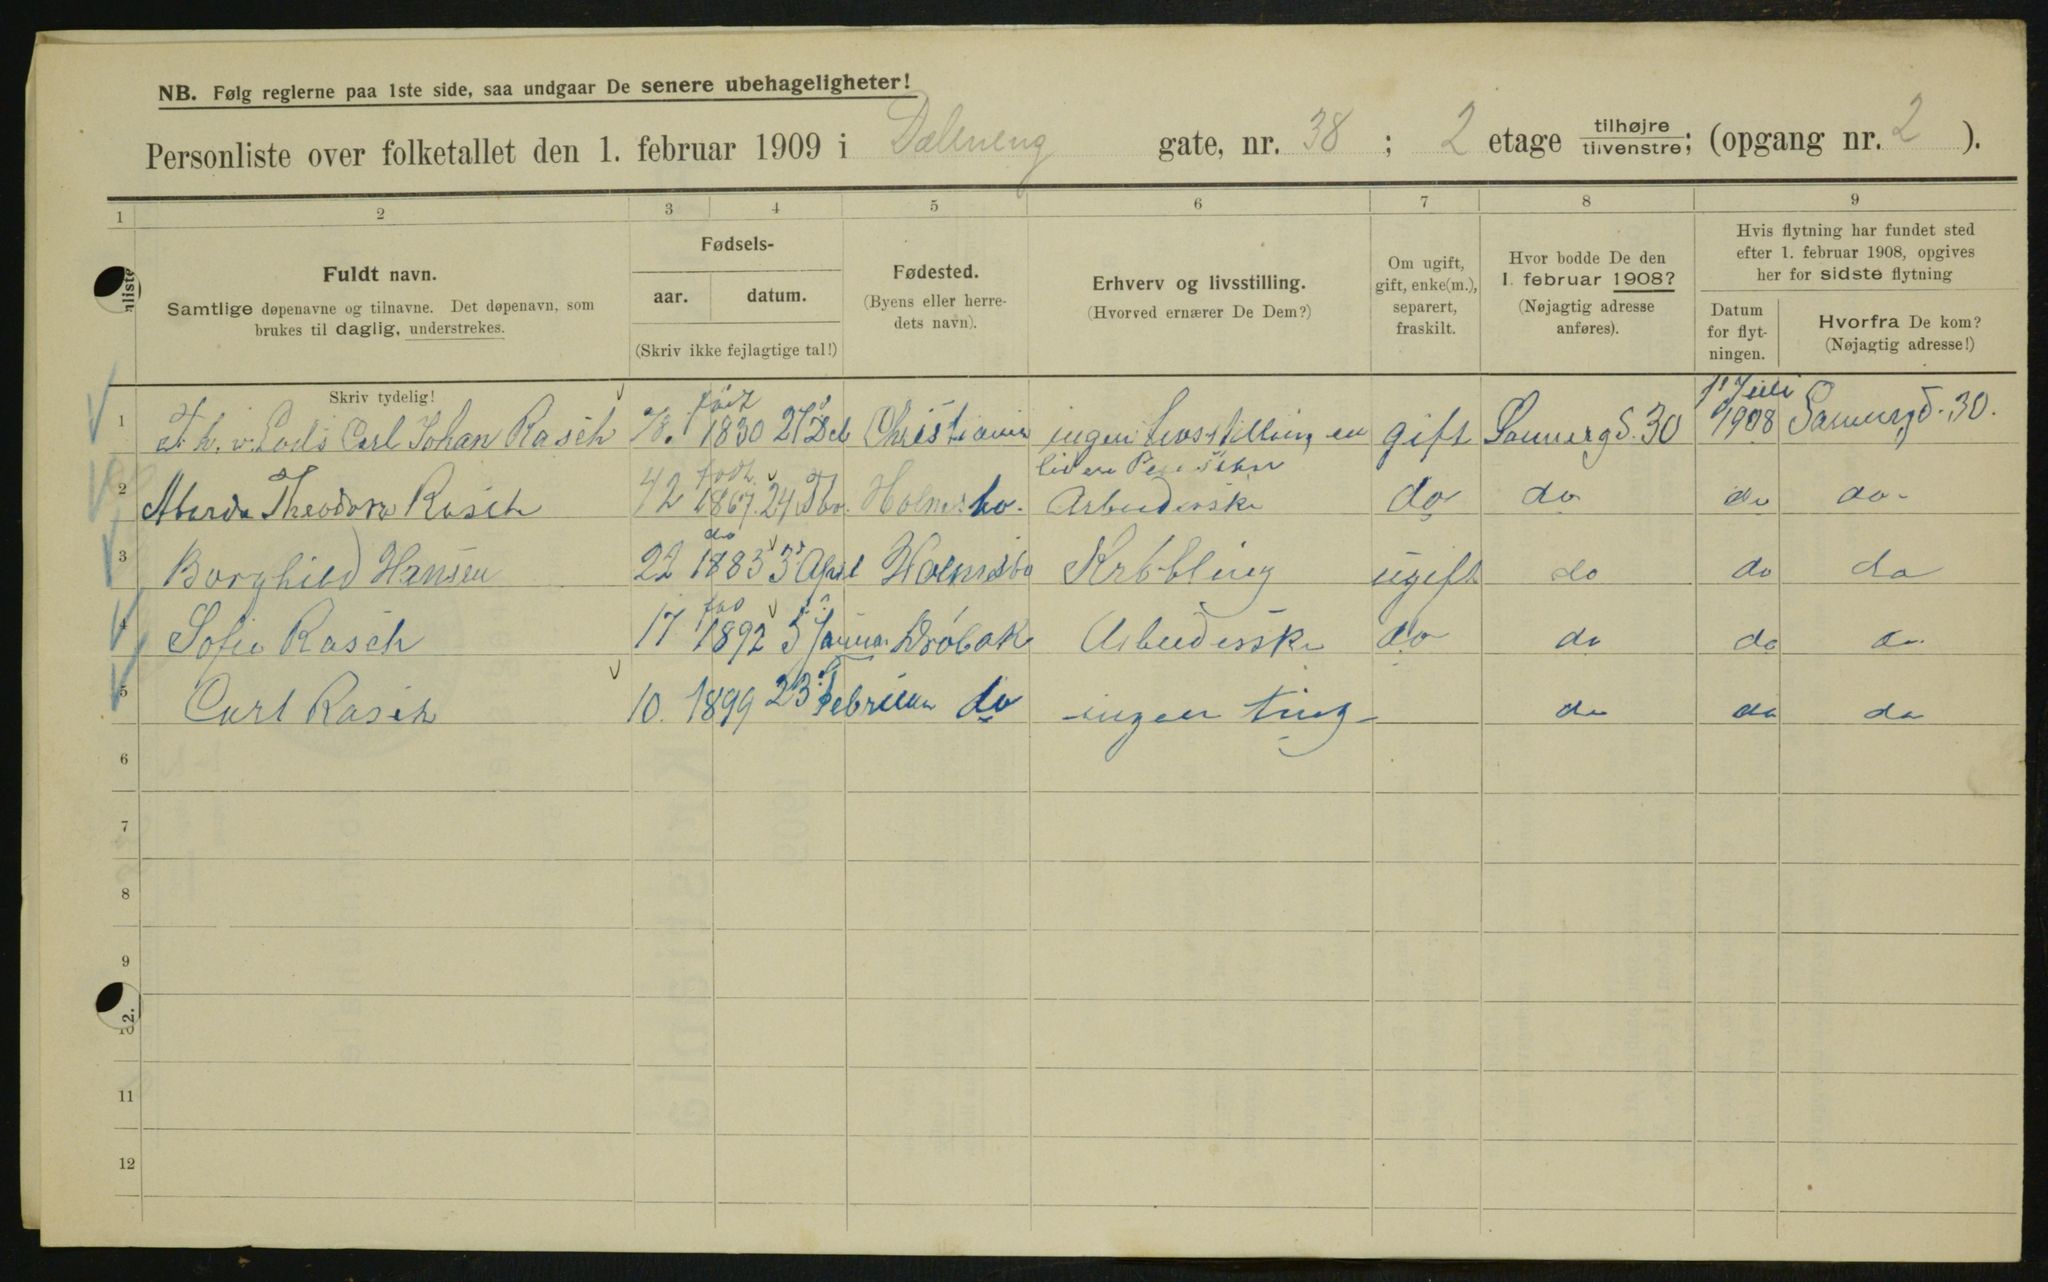 NB. Følg reglerne paa 1ste side, saa undgaar De senere ubehageligheter!
Personliste over folketallet den 1. februar 1909 i Dæleneng gate, nr. 38 ; 2 etage tilhøjre tilvenstre; (opgang nr. 2 ).
1 2 3 4 5 6 7 8 9
Fuldt navn.
Samtlige døpenavne og tilnavne. Det døpenavn, som
brukes til daglig, understrekes.
Fødsels-
aar. datum.
(Skriv ikke fejlagtige tal!)
Fødested.
(Byens eller herre-
dets navn).
Erhverv og livsstilling.
(Hvorved ernærer De Dem?)
Om ugift,
gift, enke(m.),
separert,
fraskilt.
Hvor bodde De den
1. februar 1908?
(Nøjagtig adresse
anføres).
Hvis flytning har fundet sted
efter 1. februar 1908, opgives
her for sidste flytning
Datum
for flyt-
ningen.
Hvorfra De kom?
(Nøjagtig adresse!)
Skriv tydelig!
1 Carl Johan Rasch 78. født 1830 27 Christiania ingen livsstilling en gift Sannergd. 30 1 Juli 1908 Sannergd. 30.
liden Pension
2 Theodora Rasch 42 født 1867. 24 Holmsbo. Arbeiderske do do do do
3 Borghild Hansen 22 do 1883 3 April Holmsbo Krøbling ugift do do do
4 Sofie Rasch 17 1892 5 Januar Drøbak Arbeiderske do do do do
5 Carl Rasch 10. 1899 23 Februar do ingen ting do do do
6
7
8
9
10
11
12